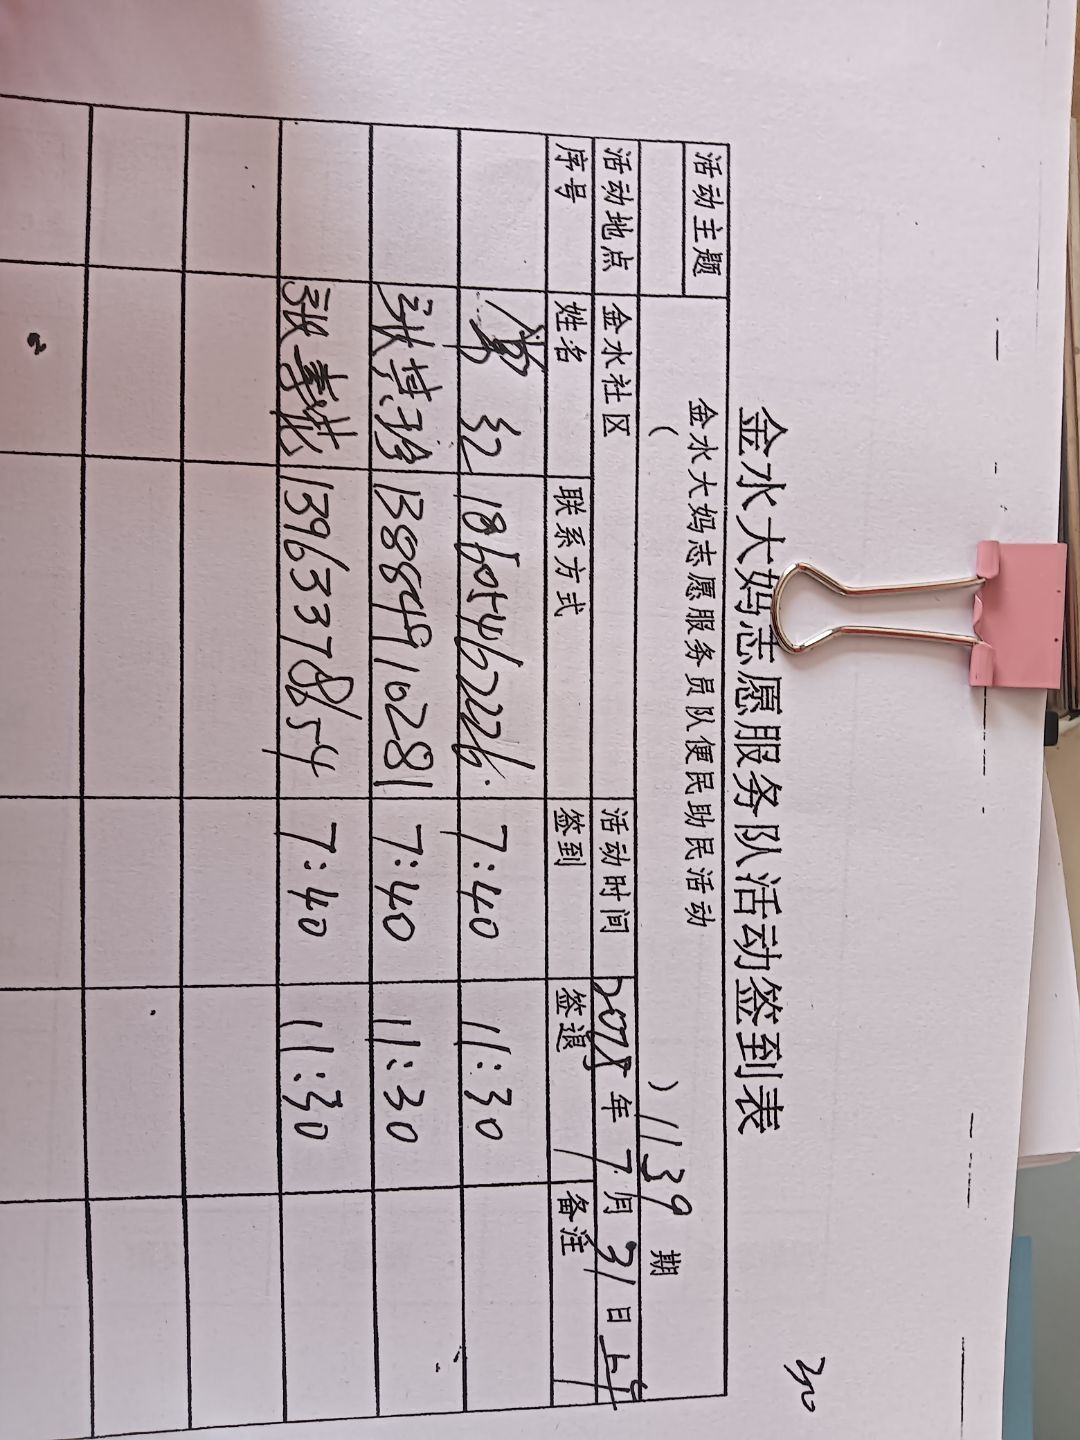 30
金水大妈志愿服务队活动签到表
活动主题 金水大妈志愿服务员队便民助民活动
( ) 1139 期
活动地点 金水社区 活动时间 年 7 月 31 日 上午
序号 姓名 联系方式 签到 签退 备注
7:40 11:30
张其珍 13884910281 7:40 11:30
张 13963378854 7:40 11:30